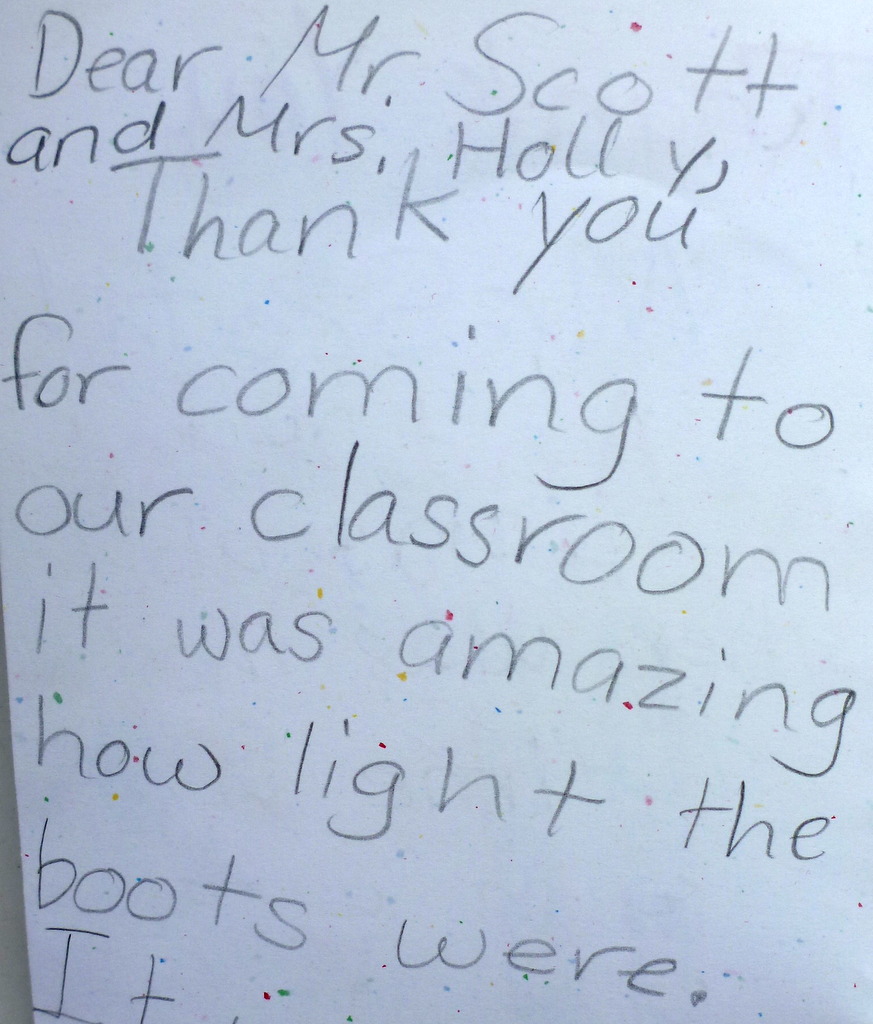 Dear Mr. Scott
and Mrs. Holly,
Thank you
for coming to
our classroom
it was amazing
how light the
boots were.
It